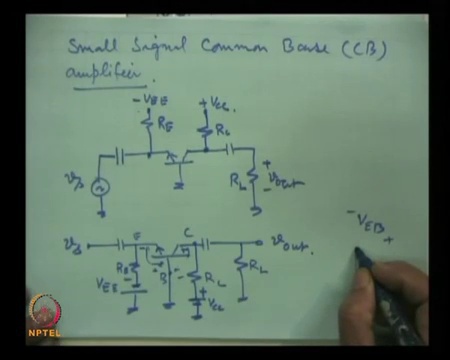 Small Signal Common Base (CB)
amplifier.
- VEE
+ VCC
RE
RL
vs
+
RL
vout
-
E
C
vs
vout.
RE
B
VEB
RL
RL
+
VCC
- VEB +
NPTEL